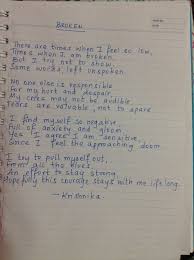 BROKEN
There are times when I feel so low,
Times when I am broken.
But I try not to show.
Some words, left unspoken.
No one else is responsible
For my hurt and despair.
My cries may not be audible
Tears are valuable, not to spare
I find myself so negative
Full of anxiety and gloom.
Yes I agree I am sensitive,
Since I feel the approaching doom
I try to pull myself out,
From all the blues.
An effort to stay strong
Hopefully this courage stays with me life long.